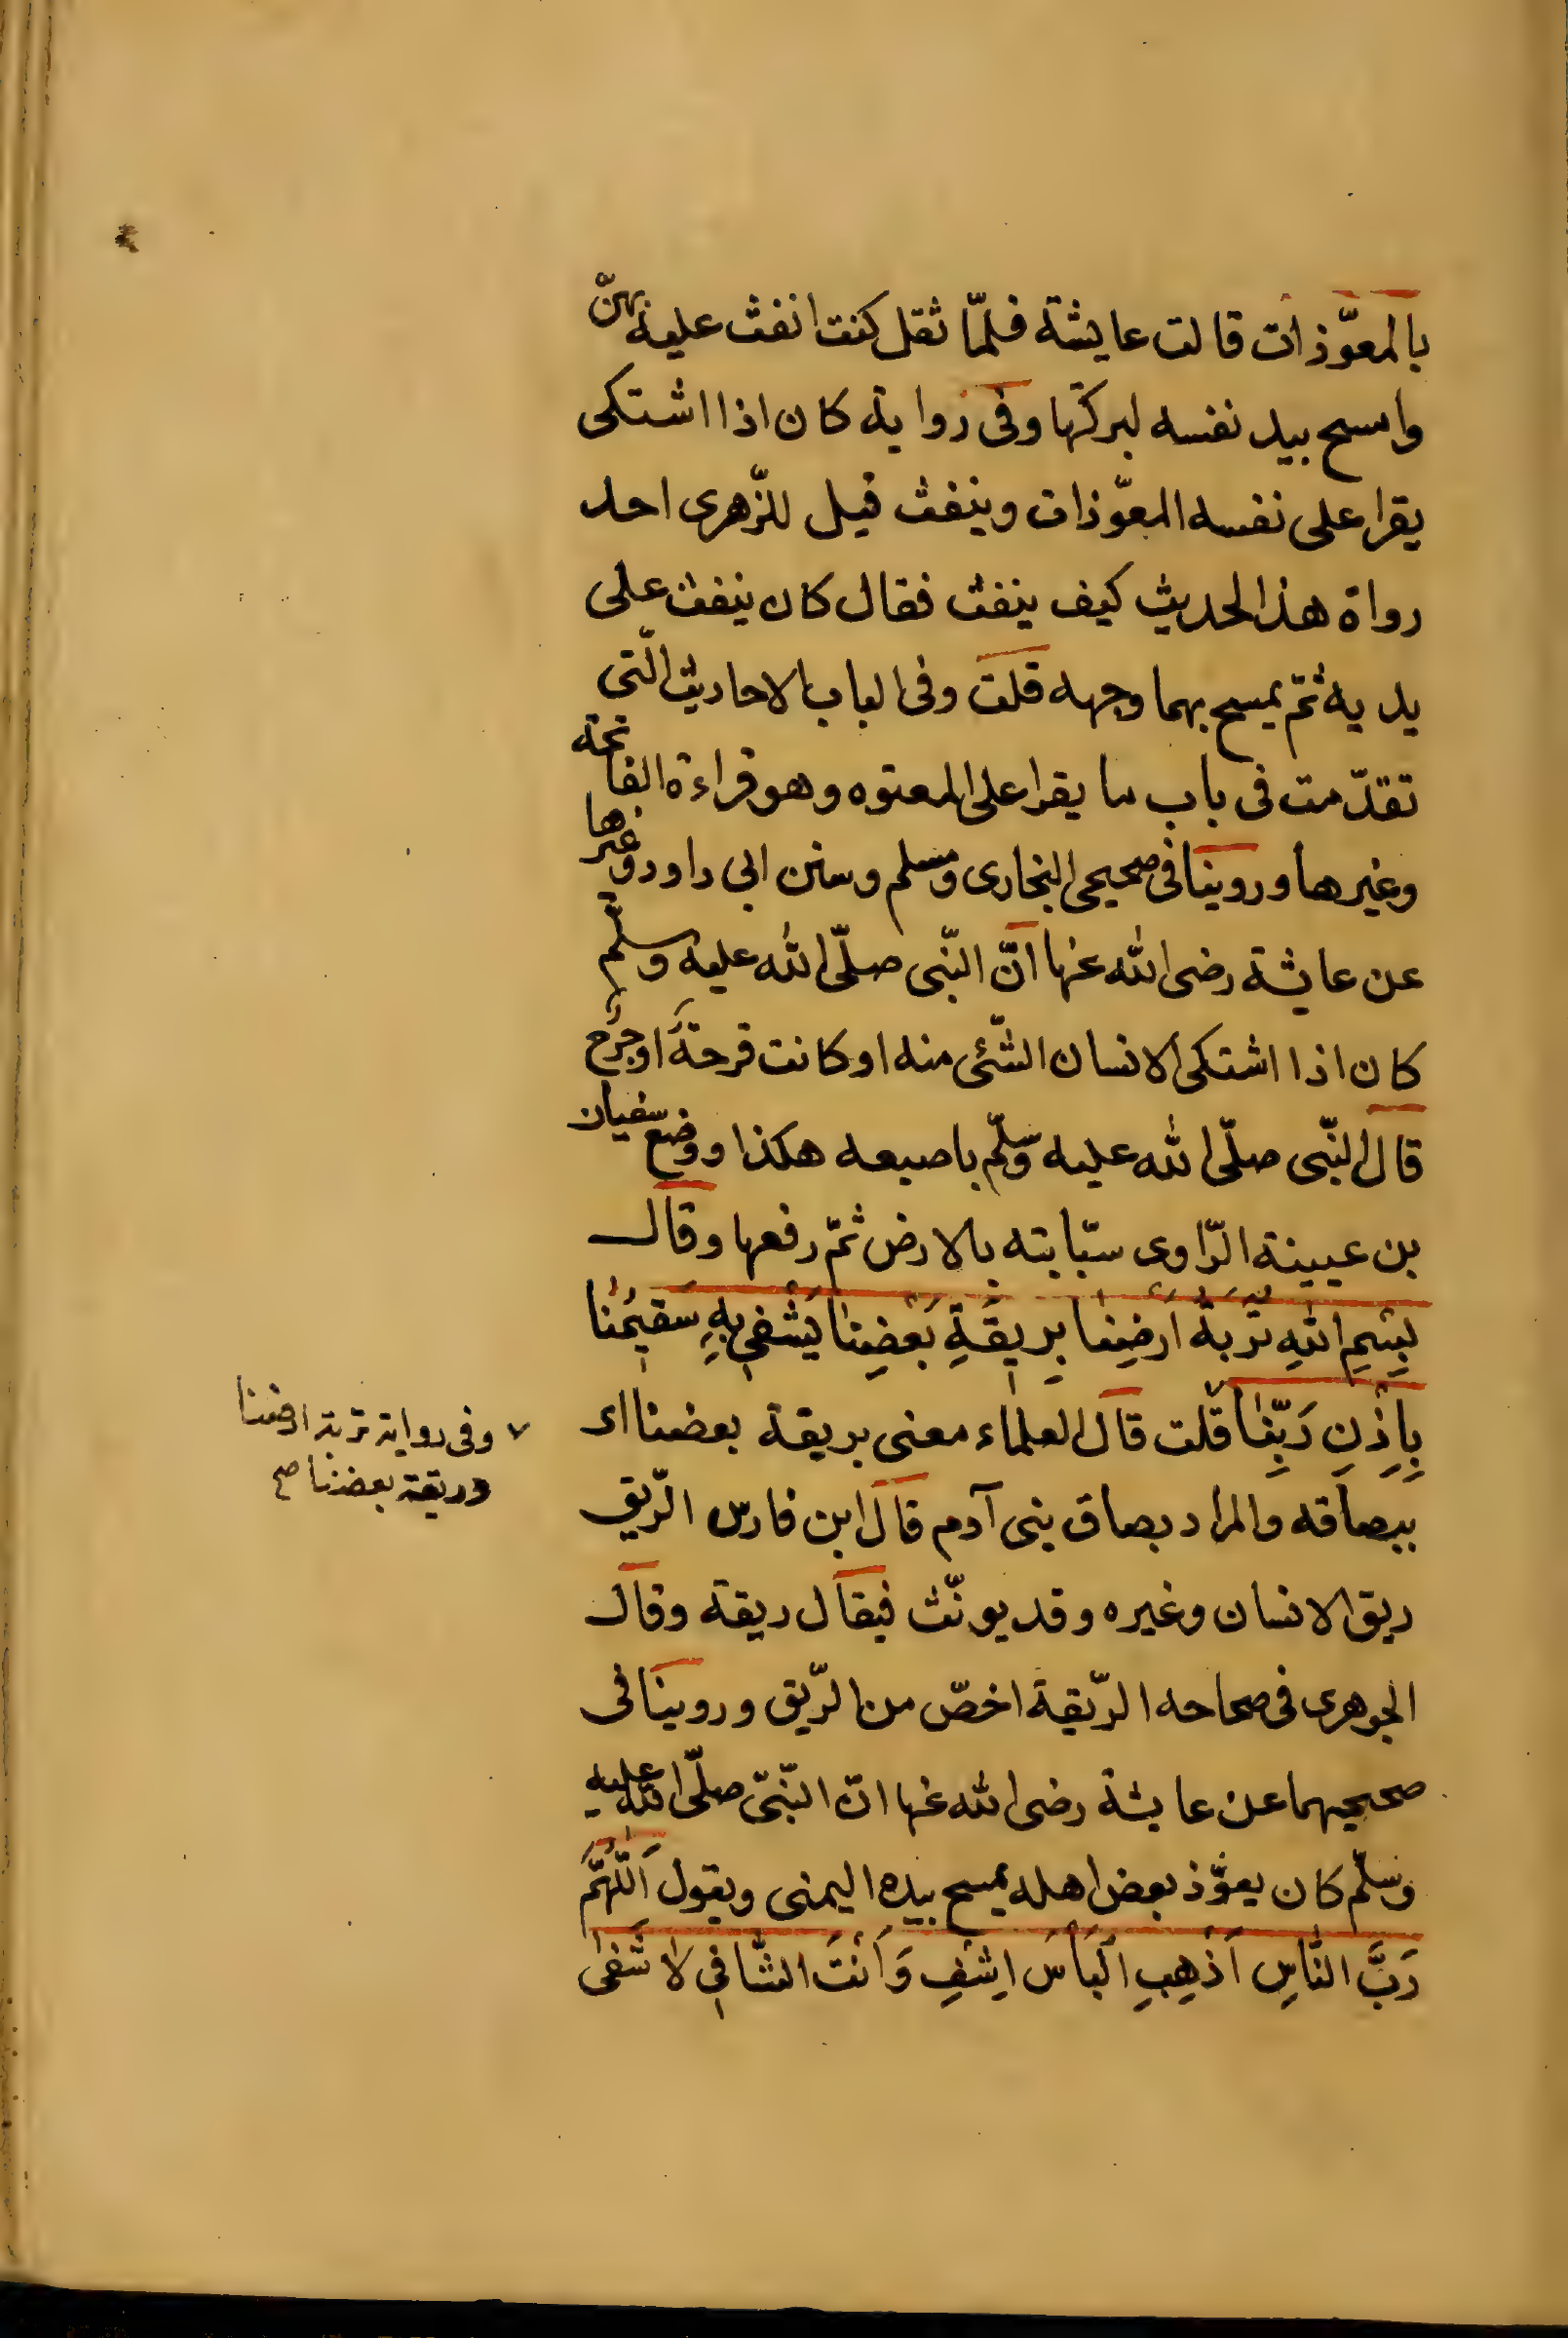 بالمعوّذات قالت عايشة فلمّا ثقل كنت انفث عليه بهنّ
وامسح بيد نفسه لبركتها وفى رواية كان اذا اشتكى
يقرا على نفسه المعوّذات وينفث قيل للزّهرى احد
رواة هذا الحديث كيف ينفث فقال كان ينفث على
يديه ثمّ يمسح بهما وجهه قلت وفى الباب الاحاديث الّتى
تقدّمت فى باب ما يقرا على المعتوه وهو قراءة الفاتحة
وغيرها وروينا فى صحيحى البخارى ومسلم وسنن ابى داود وغيرها
عن عايشة رضى الله عنها انّ النّبى صلّى الله عليه وسلّم
كان اذا اشتكى الانسان الشّئ منه او كانت قرحةَ او جُرح
قال النّبى صلّى الله عليه وسلّم باصبعه هكذا ووضع سفيان
بن عيينة الرّاوى سبّابته بالارض ثمّ رفعها وقال
بِسْمِ اللهِ تُرْبَةُ اَرْضِنَا بِرِيقَةِ بَعْضِنَا يُشْفٰى بِهِ سَقِيمُنَا
بِاِذْنِ رَبِّنَا ٧ قلت قال العلماء معنى بريقة بعضنا اى
ببصاقه والمراد بصاق بنى آدم قال ابن فارس الرّيق
ريق الانسان وغيره وقد يونّث فيقال ريقة وقال
الجوهرى فى صحاحه الرّيقة اخصّ من الرّيق وروينا فى
صحيحيهما عن عايشة رضى الله عنها انّ النّبىّ صلّى الله عليه
وسلّم كان يعوّذ بعض اهله يمسح بيده اليمنى ويقول اَللّٰهُمَّ
رَبَّ النَّاسِ اَذْهِبِ اَلْبَأْسَ اِشْفِ وَاَنْتَ الشَّافِى لَا شَفٰى
٧ وفى رواية تربة ارضنا
وريقة بعضنا صح